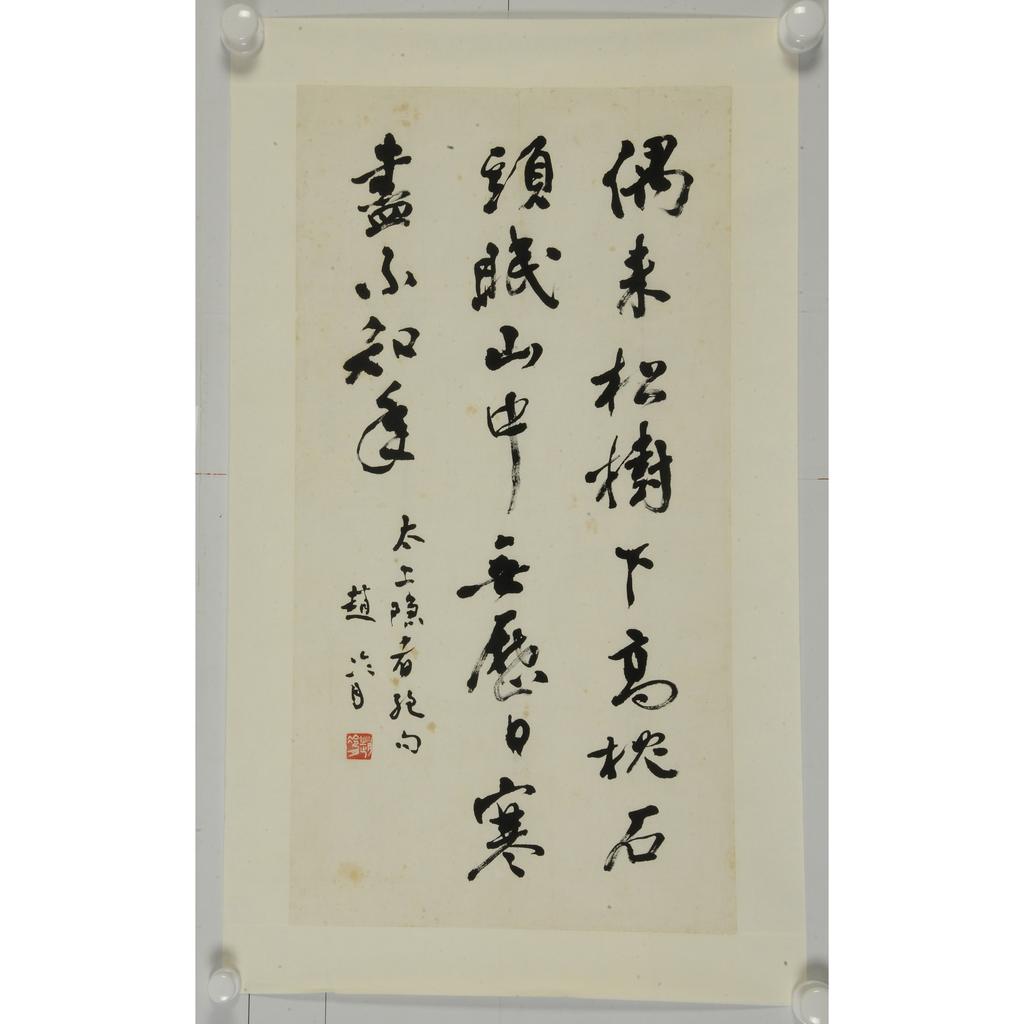 偶来松樹下高枕石
頭眠山中無歷日寒
盡不知年
太上隐者絶句
趙冷月